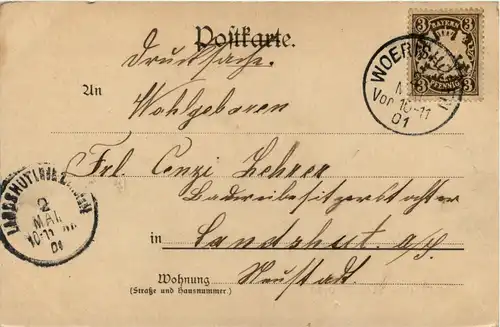 Postkarte.
Drucksache.
An
Wohlgeboren
Frl. Cenzi Lehrer
Badreibesitzerstochter
in Landshut a/J.
Wohnung Neustadt.
(Straße und Hausnummer.)
3 BAYERN 3
3 PFENNIG 3
WOERTH
Vor 10-11
01
LANDSHUT
2
MAI.
10-11
01